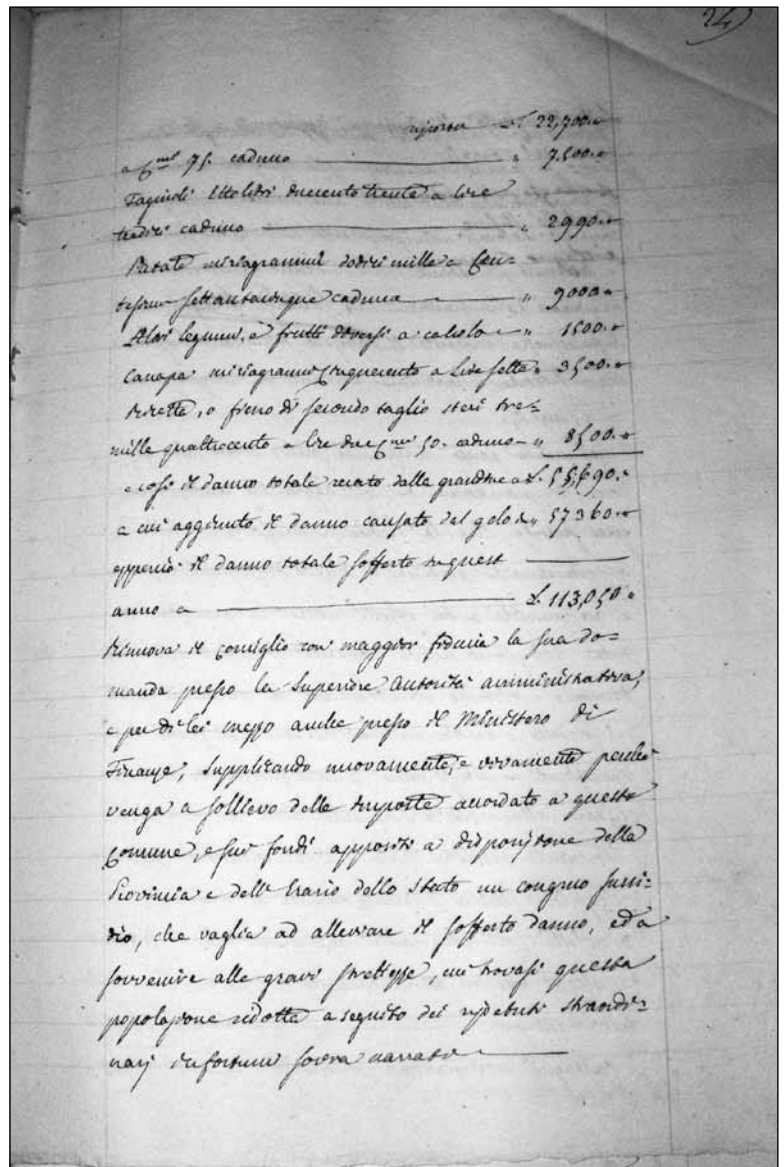 24)
riporto £ 22,700.
a C.mi 75. caduno " 7.500.
Fagiuoli Ettolitri duecento trenta a lire
tredici caduno " 2990.
Patate miriagrammi dodici mille a Cen=
tesimi settantacinque caduna " 9000
Altri legumi, e frutti diversi a calcolo " 1500.
Canapa miriagrammi cinquecento a Lire sette " 3500.
o fieno di secondo taglio steri tre=
mille quattrocento a lire due C.mi 50. caduno " 8500.
e così il danno totale recato dalla grandine a £. 55,690.
a cui aggiunto il danno causato dal gelo " 57360.
epperciò il danno totale sofferto in quest
anno a £. 113,050
Rinnova il consiglio con maggior fiducia la sua do=
manda presso la Superiore Autorità amministrativa,
e per di lei mezzo anche presso il Ministero di
Finanze, supplicando nuovamente, e vivamente perchè
venga a sollievo delle imposte accordato a questo
Comune, e sui fondi appositi a disposizione della
Provincia e dell'Erario dello Stato un congruo sussi=
dio, che vaglia ad alleviare il sofferto danno, ed a
sovvenire alle gravi strettezze, cui trovasi questa
popolazione ridotta a seguito dei ripetuti straordi=
narj infortunii sovra narrati